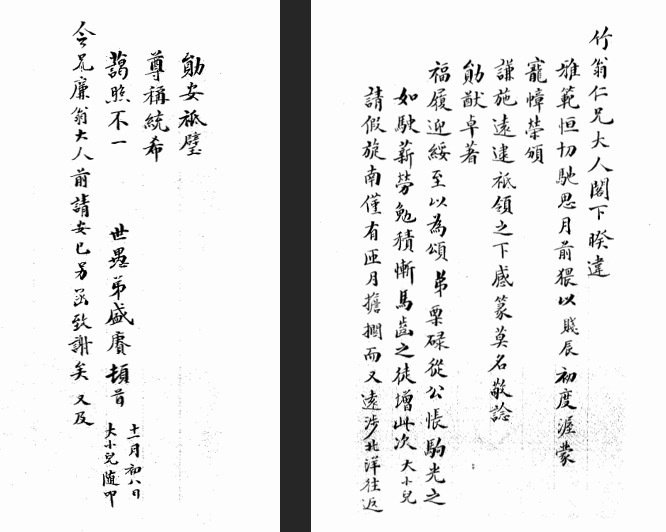 竹翁仁兄大人閣下睽違
雅範恒切馳思月前猥以賤辰初度渥蒙
寵幛榮頒
謙施遠逮祗領之下感篆莫名敬諗
勛猷卓著
福履迎綏至以為頌弟栗碌從公悵駒光之
如駛薪勞勉積慚馬齒之徒增此次大小兒
請假旋南僅有匝月擔擱而又遠涉北洋往返
勛安祗璧
尊稱統希
藹照不一
世愚弟盛賡頓首
十一月初八日
大小兒隨叩
令兄廉翁大人前請安已另函致謝矣又及